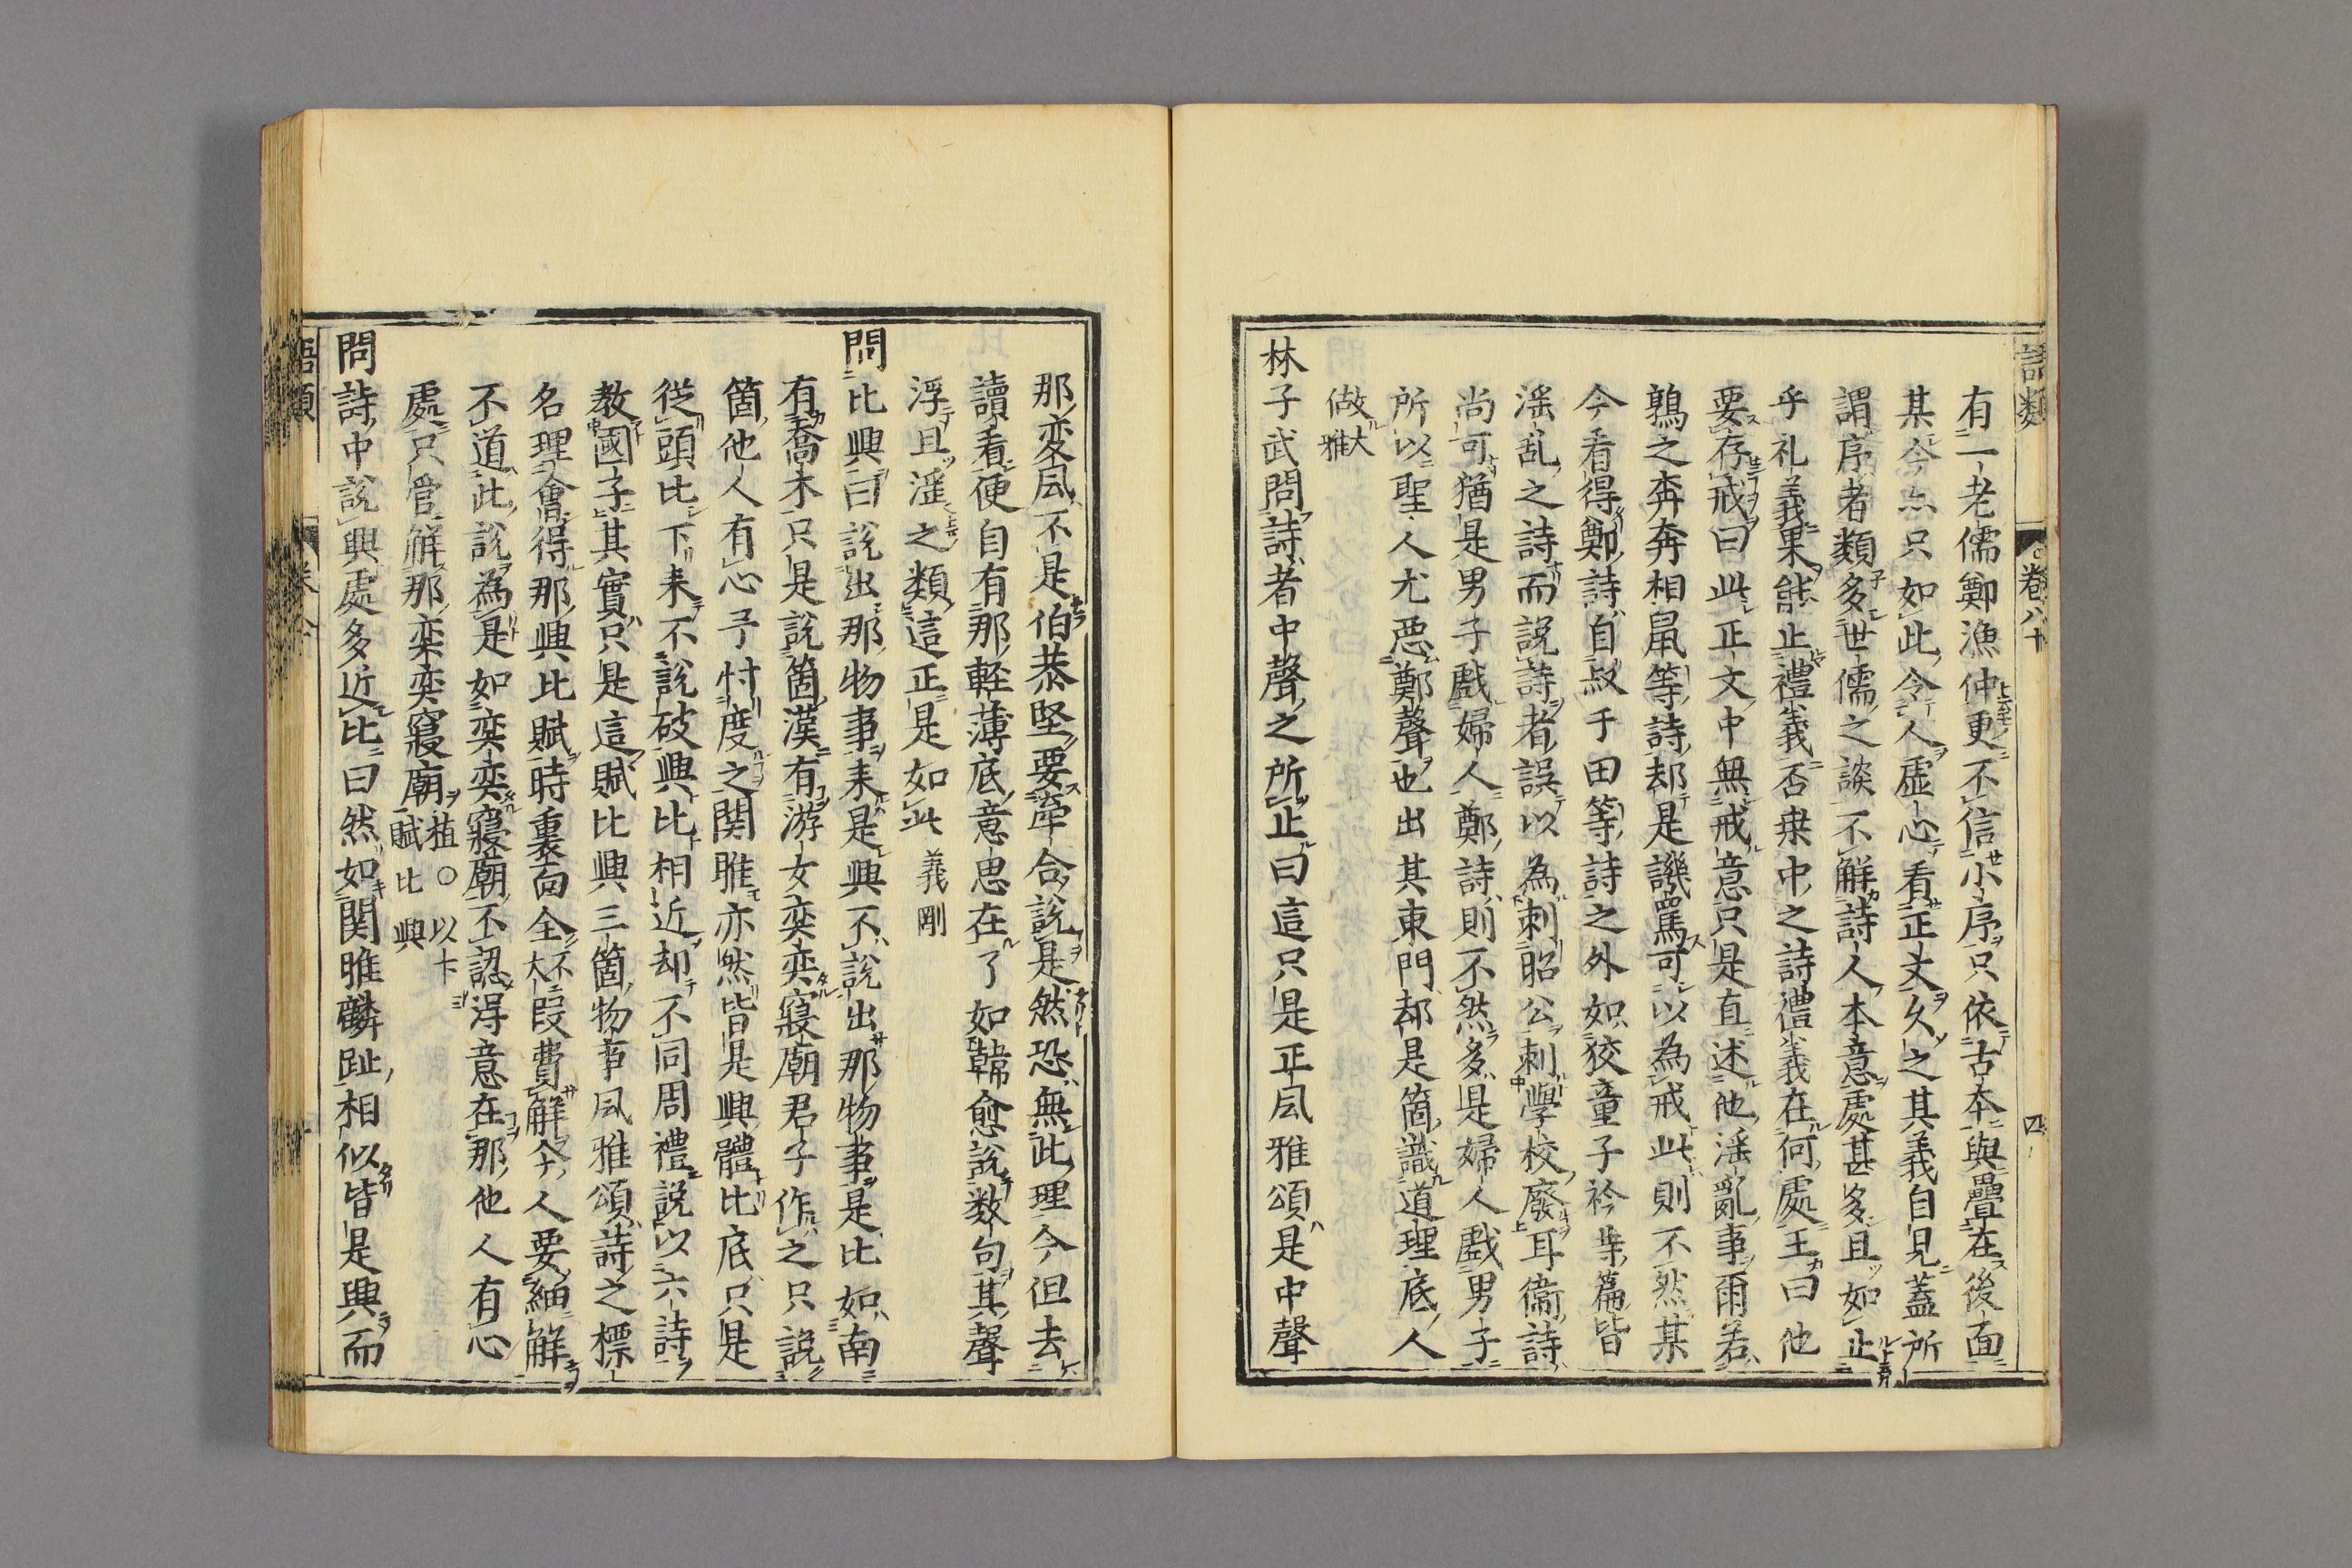 語類 卷八十 四
有一老儒鄭漁仲更不信小序只依古本與疊在後面
某今亦只如此令人虛心看正文久之其義自見蓋所
謂序者類多世儒之談不解詩人本意處甚多且如止
乎礼義果能止禮義否桒中之詩禮義在何處王曰他
要存戒曰此正文中無戒意只是直述他滛亂事爾若
鶉之奔奔相鼠等詩却是譏罵可以為戒此則不然某
今看得鄭詩自叔于田等詩之外如狡童子衿等篇皆
滛乱之詩而説詩者誤以為刺昭公刺學校廢耳衞詩
尚可猶是男子戲婦人鄭詩則不然多是婦人戲男子
所以聖人尤惡鄭聲也出其東門却是箇識道理底人
做大雅
林子武問詩者中聲之所止曰這只是正風雅頌是中聲
那変風不是伯恭堅要牽合說是然恐無此理今但去
讀看便自有那軽薄底意思在了如韓愈説数句其聲
浮且滛之類這正是如此義剛
問比興曰説出那物事来是興不説出那物事是比如南
有喬木只是説箇漢有游女奕奕寢廟君子作之只説
箇他人有心予忖度之関雎亦然皆是興體比底只是
從頭比下来不説破興比相近却不同周禮説以六詩
教國子其實只是這賦比興三箇物事風雅頌詩之標
名理會得那興比賦時裏面全不大段費解今人要細解
不道此説為是如奕奕寢廟不認淂意在那他人有心
處只管解那奕奕寢廟植○以下賦比興
問詩中說興處多近比曰然如関雎麟趾相似皆是興而
語類